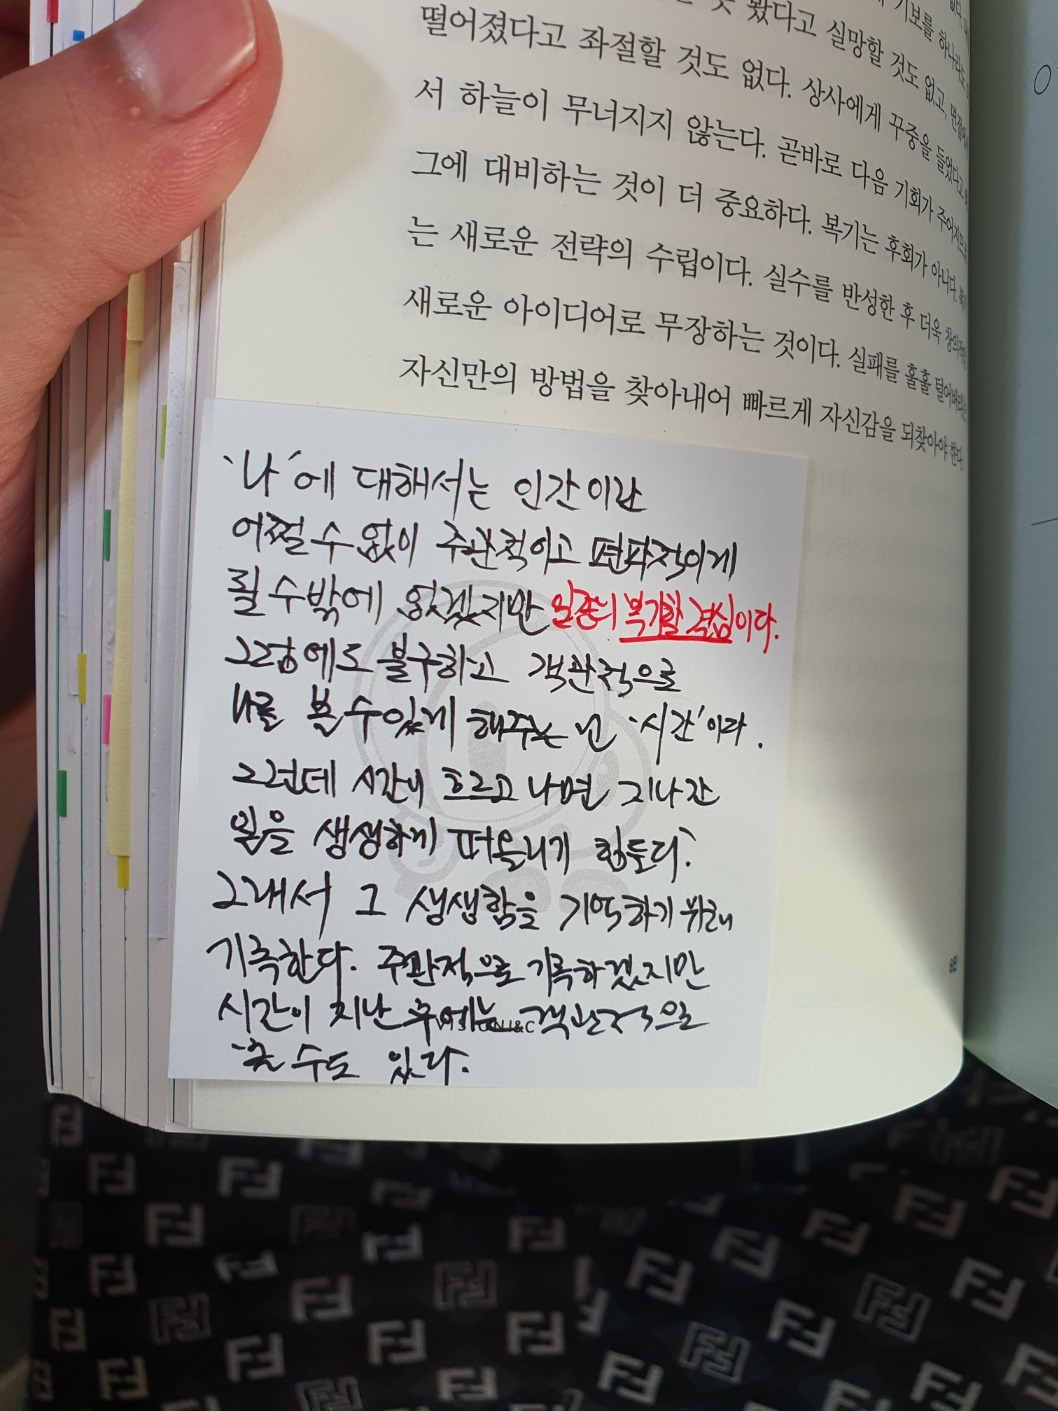 못 봤다고 실망할 것도 없고, 면접에서
떨어졌다고 좌절할 것도 없다. 상사에게 꾸중을 들었다고 해
서 하늘이 무너지지 않는다. 곧바로 다음 기회가 주어지므로
그에 대비하는 것이 더 중요하다. 복기는 후회가 아니다. 복기
는 새로운 전략의 수립이다. 실수를 반성한 후 더욱 창의적인
새로운 아이디어로 무장하는 것이다. 실패를 훌훌 털어버리고
자신만의 방법을 찾아내어 빠르게 자신감을 되찾아야 한다.
'나'에 대해서는 인간이란
어쩔 수 없이 주관적이고 편파적이게
될 수밖에 없겠지만 일종의 복기할 결심이다.
그럼에도 불구하고 객관적으로
나를 볼 수 있게 해주는 건 '시간'이다.
그런데 시간이 흐르고 나면 지나간
일을 생생하게 떠올리기 힘들다.
그래서 그 생생함을 기억하기 위해
기록한다. 주관적으로 기록하겠지만
시간이 지난 후에는 객관적으로
볼 수도 있다.
VISION I&C